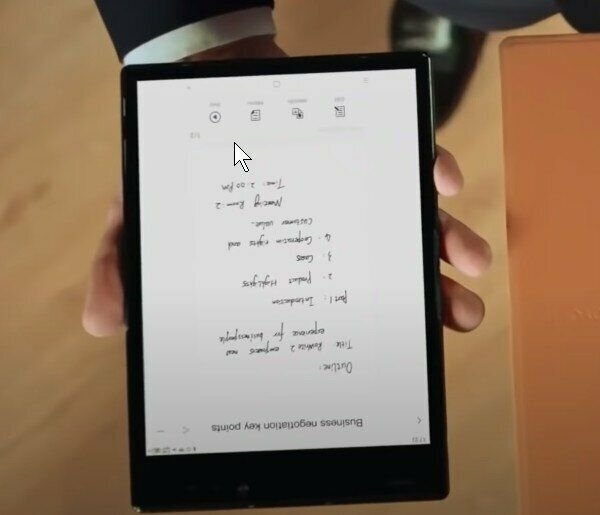 17:22
Business negotiation key points
Outline:
Title: RoWrite 2 empowers new
experience for businesspeople
Part 1: Introduction
2. Product Highlights
3. Cases
4. Cooperation rights and
Customer value.
Meeting Room-2
Time: 2:00 PM
1/2